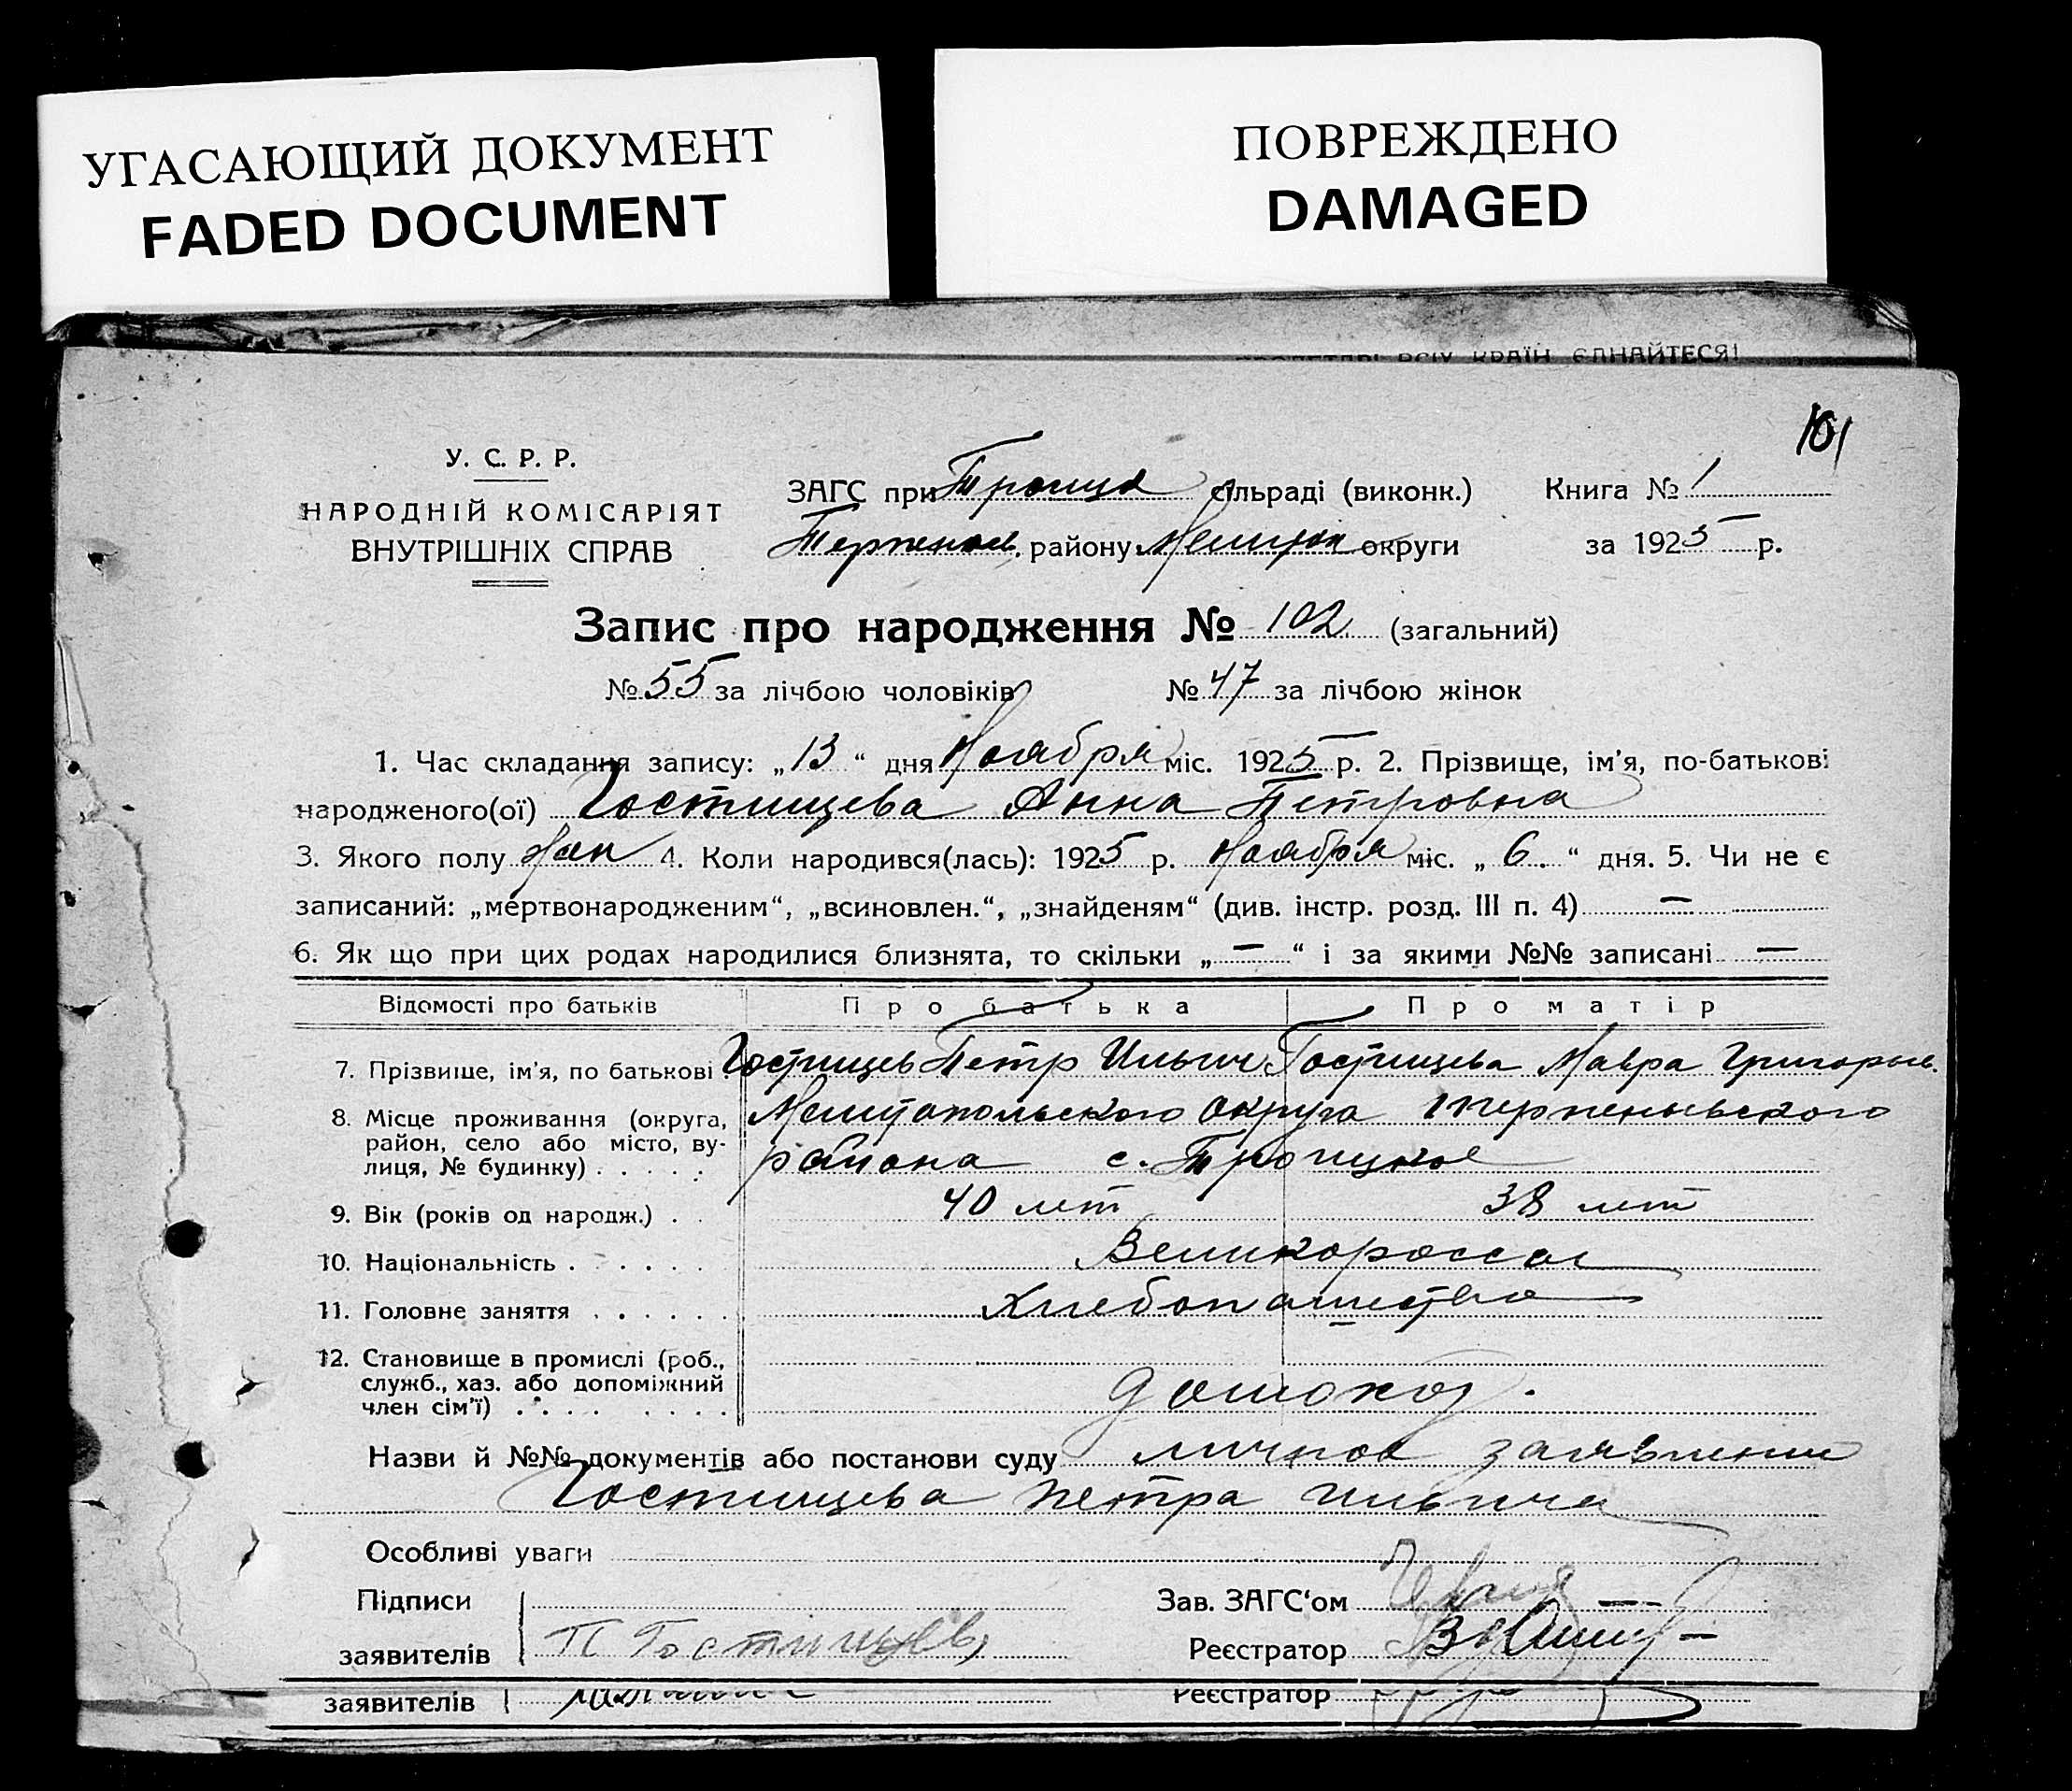 УГАСАЮЩИЙ ДОКУМЕНТ
FADED DOCUMENT
ПОВРЕЖДЕНО
DAMAGED
ПРОЛЕТАРІ ВСІХ КРАЇН, ЄДНАЙТЕСЯ!
101
У. С. Р. Р.
НАРОДНІЙ КОМІСАРІЯТ
ВНУТРІШНІХ СПРАВ
ЗАГС при Троицк сільраді (виконк.) Книга № 1
Терпеньев. району Мелитоп округи за 1925 р.
Запис про народження № 102 (загальний)
№ 55 за лічбою чоловіків № 47 за лічбою жінок
1. Час складання запису: „13“ дня Ноября міс. 1925 р. 2. Прізвище, ім'я, по-батькові
народженого(ої) Гостищева Анна Петровна
3. Якого полу жен 4. Коли народився(лась): 1925 р. Ноября міс. „6.“ дня. 5. Чи не є
записаний: „мертвонародженим“, „всиновлен.“, „знайденям“ (див. інстр. розд. III п. 4) —
6. Як що при цих родах народилися близнята, то скільки „—“ і за якими №№ записані —
Відомості про батьків Про батька Про матір
7. Прізвище, ім'я, по батькові Гостищев Петр Ильич Гостищева Мавра Григорьев.
8. Місце проживання (округа, район, село або місто, вулиця, № будинку) Мелитопольского округа Терпеньевского
района с. Троицкое
9. Вік (років од народж.) 40 лет 38 лет
10. Національність Великороссы
11. Головне заняття Хлебопашество
12. Становище в промислі (роб.,
служб., хаз. або допоміжний
член сім'ї)
Назви й №№ документів або постанови суду личное заявление
Гостищева Петра Ильича
Особливі уваги
Підписи Зав. ЗАГС'ом
заявителів П Гостищев Реєстратор
заявителів Реєстратор